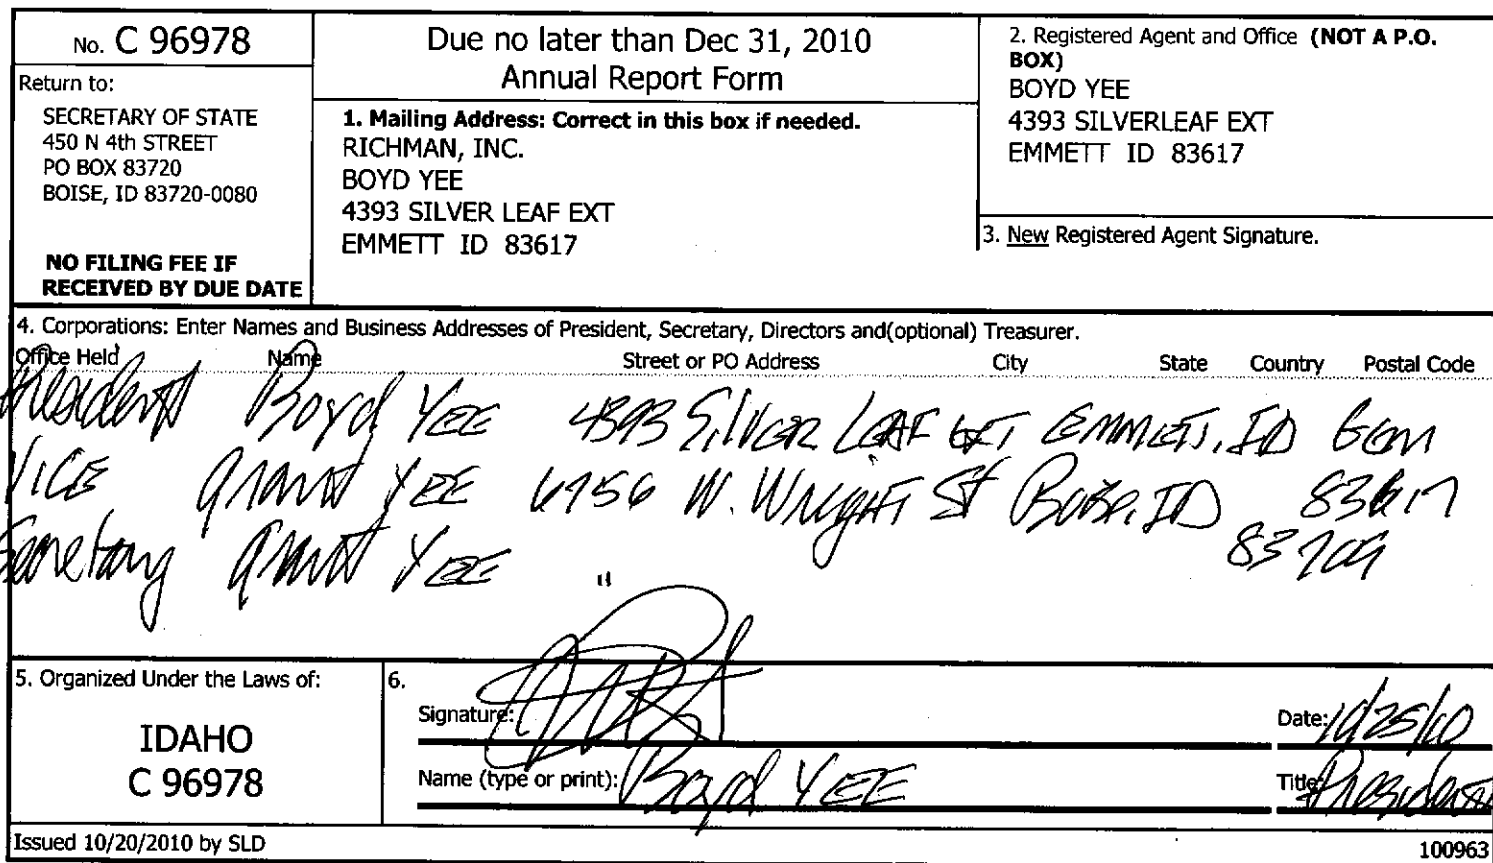 No. C 96978
Return to:
SECRETARY OF STATE
450 N 4th STREET
PO BOX 83720
BOISE, ID 83720-0080
NO FILING FEE IF
RECEIVED BY DUE DATE
Due no later than Dec 31, 2010
Annual Report Form
1. Mailing Address: Correct in this box if needed.
RICHMAN, INC.
BOYD YEE
4393 SILVER LEAF EXT
EMMETT ID 83617
2. Registered Agent and Office (NOT A P.O.
BOX)
BOYD YEE
4393 SILVERLEAF EXT
EMMETT ID 83617
3. New Registered Agent Signature.
4. Corporations: Enter Names and Business Addresses of President, Secretary, Directors and(optional) Treasurer.
Office Held Name Street or PO Address City State Country Postal Code
President Boyd YEE 4393 Silver LEAF EXT EMMETT, ID Gem
VICE Grant YEE 6756 W. Wright St Boise, ID 83617
Secretary Grant YEE " 83709
5. Organized Under the Laws of:
IDAHO
C 96978
6.
Signature:
Date: 10/25/10
Name (type or print): Boyd YEE
Title: President
Issued 10/20/2010 by SLD
100963